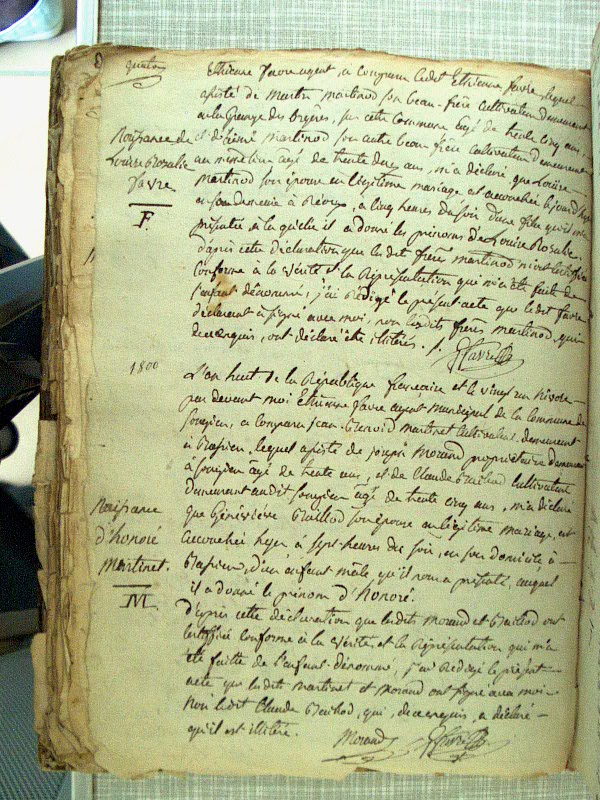 Etienne favre agent, a comparu ledit Etienne favre, lequel
assisté de martin martinod son beau-frère cultivateur demeurant
à la Grange des , sur cette Commune âgé de trente cinq ans
Naissance de
Louise Rosalie
favre
F.
et de martinod son autre beau frère cultivateur demeurant
au âgé de trente deux ans, m'a déclaré que Louise
martinod son épouse en légitime mariage est accouchée aujourd'hui
en son domicile à , à cinq heures du soir d'une fille qu'il m'a
présentée et à laquelle il a donné les prénoms de Louise Rosalie.
d'après cette déclaration que lesdits frères martinod m'ont certifié
Conforme à la vérité et la Représentation qui m'a été faite de
l'enfant dénommé, j'ai Rédigé le présent acte que ledit favre
déclarant a signé avec moi, non lesdits frères martinod, qui
de ce requis, ont déclaré être illitérés. /.
favre
1800
L'an huit de la République française et le vingt un Nivose
par devant moi Etienne favre agent municipal de la Commune de
Songieu, a comparu jean martinet Cultivateur demeurant
à , lequel assisté de joseph Morand propriétaire demeurant
à Songieu âgé de trente ans, et de Claude Baillod Cultivateur
demeurant audit Songieu âgé de trente cinq ans, m'a déclaré
Naissance
d'honoré
Martinet.
M.
que Géneviève Baillod son épouse en légitime mariage, est
accouchée hyer à sept heures du soir, en son domicile à
, d'un enfant mâle, qu'il nous a présenté, auquel
il a donné le prénom d'honoré.
d'après cette déclaration que lesdits Morand et Baillod ont
Certifié conforme à la vérité, et la Représentation qui m'a
été faitte de l'enfant dénommé, j'ai Rédigé le présent
acte que lesdit martinet et Morand ont signé avec moi
Non ledit Claude Baillod, qui, de ce requis, a déclaré
qu'il est illitéré.
Morand favre